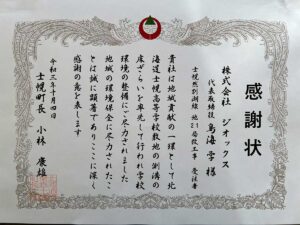 感謝状
株式会社 ジオックス
代表取締役 鳥海 学 様
貴社は地域貢献の一環として北
海道士幌高等学校敷地の側溝の
床ざらいを率先して行われ学校
環境の整備にご尽力されました
地域の環境保全に尽力されたこ
とは誠に顕著でありここに深く
感謝の意を表します
令和三年十月四日
士幌町長 小林 康雄